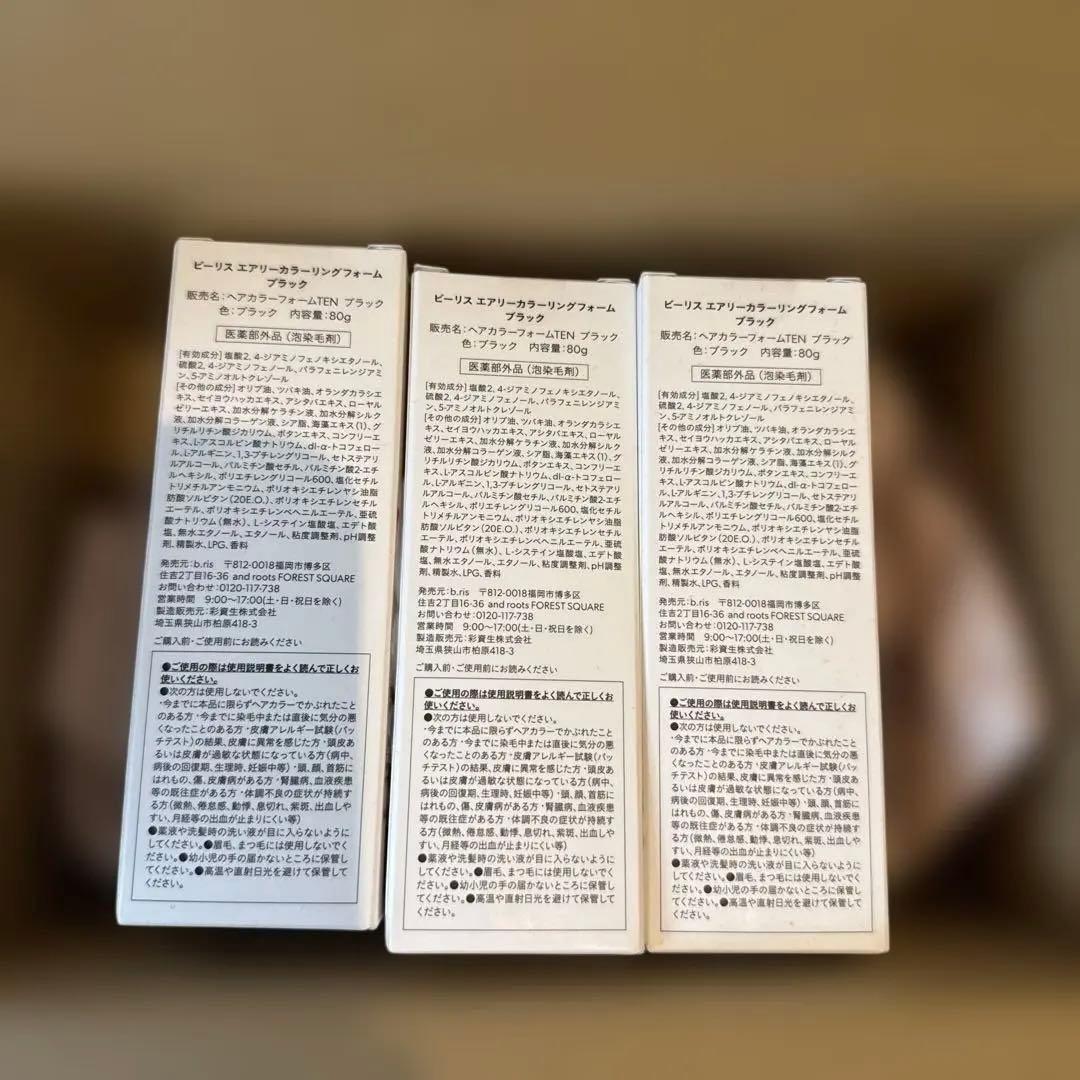 ビーリス エアリーカラーリングフォーム
ブラック
販売名:ヘアカラーフォームTEN ブラック
色:ブラック 内容量:80g
医薬部外品(泡染毛剤)
[有効成分] 塩酸2, 4-ジアミノフェノキシエタノール、
硫酸2, 4-ジアミノフェノール、パラフェニレンジアミ
ン、5-アミノオルトクレゾール
[その他の成分] オリブ油、ツバキ油、オランダカラシエ
キス、セイヨウハッカエキス、アシタバエキス、ローヤル
ゼリーエキス、加水分解ケラチン液、加水分解シルク
液、加水分解コラーゲン液、シア脂、海藻エキス(1)、グ
リチルリチン酸ジカリウム、ボタンエキス、コンフリーエ
キス、L-アスコルビン酸ナトリウム、dl-α-トコフェロー
ル、L-アルギニン、1,3-ブチレングリコール、セトステアリ
ルアルコール、パルミチン酸セチル、パルミチン酸2-エチ
ルヘキシル、ポリエチレングリコール600、塩化セチル
トリメチルアンモニウム、ポリオキシエチレンヤシ油脂
肪酸ソルビタン(20E.O.)、ポリオキシエチレンセチル
エーテル、ポリオキシエチレンベヘニルエーテル、亜硫
酸ナトリウム(無水)、L-システイン塩酸塩、エデト酸
塩、無水エタノール、エタノール、粘度調整剤、pH調整
剤、精製水、LPG、香料
発売元:b.ris 〒812-0018福岡市博多区
住吉2丁目16-36 and roots FOREST SQUARE
お問い合わせ:0120-117-738
営業時間 9:00〜17:00(土・日・祝日を除く)
製造販売元:彩資生株式会社
埼玉県狭山市柏原418-3
ご購入前・ご使用前にお読みください
●ご使用の際は使用説明書をよく読んで正しくお
使いください。
●次の方は使用しないでください。
・今までに本品に限らずヘアカラーでかぶれたこと
のある方・今までに染毛中または直後に気分の悪
くなったことのある方・皮膚アレルギー試験(パッ
チテスト)の結果、皮膚に異常を感じた方・頭皮あ
るいは皮膚が過敏な状態になっている方(病中、
病後の回復期、生理時、妊娠中等)・頭、顔、首筋に
はれもの、傷、皮膚病がある方・腎臓病、血液疾患
等の既往症がある方・体調不良の症状が持続す
る方(微熱、倦怠感、動悸、息切れ、紫斑、出血しや
すい、月経等の出血が止まりにくい等)
●薬液や洗髪時の洗い液が目に入らないように
してください。●眉毛、まつ毛には使用しないでく
ださい。●幼小児の手の届かないところに保管し
てください。●高温や直射日光を避けて保管して
ください。
ビーリス エアリーカラーリングフォーム
ブラック
販売名:ヘアカラーフォームTEN ブラック
色:ブラック 内容量:80g
医薬部外品(泡染毛剤)
[有効成分] 塩酸2, 4-ジアミノフェノキシエタノール、
硫酸2, 4-ジアミノフェノール、パラフェニレンジアミ
ン、5-アミノオルトクレゾール
[その他の成分] オリブ油、ツバキ油、オランダカラシエ
キス、セイヨウハッカエキス、アシタバエキス、ローヤル
ゼリーエキス、加水分解ケラチン液、加水分解シルク
液、加水分解コラーゲン液、シア脂、海藻エキス(1)、グ
リチルリチン酸ジカリウム、ボタンエキス、コンフリーエ
キス、L-アスコルビン酸ナトリウム、dl-α-トコフェロー
ル、L-アルギニン、1,3-ブチレングリコール、セトステアリ
ルアルコール、パルミチン酸セチル、パルミチン酸2-エチ
ルヘキシル、ポリエチレングリコール600、塩化セチル
トリメチルアンモニウム、ポリオキシエチレンヤシ油脂
肪酸ソルビタン(20E.O.)、ポリオキシエチレンセチル
エーテル、ポリオキシエチレンベヘニルエーテル、亜硫
酸ナトリウム(無水)、L-システイン塩酸塩、エデト酸
塩、無水エタノール、エタノール、粘度調整剤、pH調整
剤、精製水、LPG、香料
発売元:b.ris 〒812-0018福岡市博多区
住吉2丁目16-36 and roots FOREST SQUARE
お問い合わせ:0120-117-738
営業時間 9:00〜17:00(土・日・祝日を除く)
製造販売元:彩資生株式会社
埼玉県狭山市柏原418-3
ご購入前・ご使用前にお読みください
●ご使用の際は使用説明書をよく読んで正しくお
使いください。
●次の方は使用しないでください。
・今までに本品に限らずヘアカラーでかぶれたこと
のある方・今までに染毛中または直後に気分の悪
くなったことのある方・皮膚アレルギー試験(パッ
チテスト)の結果、皮膚に異常を感じた方・頭皮あ
るいは皮膚が過敏な状態になっている方(病中、
病後の回復期、生理時、妊娠中等)・頭、顔、首筋に
はれもの、傷、皮膚病がある方・腎臓病、血液疾患
等の既往症がある方・体調不良の症状が持続す
る方(微熱、倦怠感、動悸、息切れ、紫斑、出血しや
すい、月経等の出血が止まりにくい等)
●薬液や洗髪時の洗い液が目に入らないように
してください。●眉毛、まつ毛には使用しないでく
ださい。●幼小児の手の届かないところに保管し
てください。●高温や直射日光を避けて保管して
ください。
ビーリス エアリーカラーリングフォーム
ブラック
販売名:ヘアカラーフォームTEN ブラック
色:ブラック 内容量:80g
医薬部外品(泡染毛剤)
[有効成分] 塩酸2, 4-ジアミノフェノキシエタノール、
硫酸2, 4-ジアミノフェノール、パラフェニレンジアミ
ン、5-アミノオルトクレゾール
[その他の成分] オリブ油、ツバキ油、オランダカラシエ
キス、セイヨウハッカエキス、アシタバエキス、ローヤル
ゼリーエキス、加水分解ケラチン液、加水分解シルク
液、加水分解コラーゲン液、シア脂、海藻エキス(1)、グ
リチルリチン酸ジカリウム、ボタンエキス、コンフリーエ
キス、L-アスコルビン酸ナトリウム、dl-α-トコフェロー
ル、L-アルギニン、1,3-ブチレングリコール、セトステアリ
ルアルコール、パルミチン酸セチル、パルミチン酸2-エチ
ルヘキシル、ポリエチレングリコール600、塩化セチル
トリメチルアンモニウム、ポリオキシエチレンヤシ油脂
肪酸ソルビタン(20E.O.)、ポリオキシエチレンセチル
エーテル、ポリオキシエチレンベヘニルエーテル、亜硫
酸ナトリウム(無水)、L-システイン塩酸塩、エデト酸
塩、無水エタノール、エタノール、粘度調整剤、pH調整
剤、精製水、LPG、香料
発売元:b.ris 〒812-0018福岡市博多区
住吉2丁目16-36 and roots FOREST SQUARE
お問い合わせ:0120-117-738
営業時間 9:00〜17:00(土・日・祝日を除く)
製造販売元:彩資生株式会社
埼玉県狭山市柏原418-3
ご購入前・ご使用前にお読みください
●ご使用の際は使用説明書をよく読んで正しくお
使いください。
●次の方は使用しないでください。
・今までに本品に限らずヘアカラーでかぶれたこと
のある方・今までに染毛中または直後に気分の悪
くなったことのある方・皮膚アレルギー試験(パッ
チテスト)の結果、皮膚に異常を感じた方・頭皮あ
るいは皮膚が過敏な状態になっている方(病中、
病後の回復期、生理時、妊娠中等)・頭、顔、首筋に
はれもの、傷、皮膚病がある方・腎臓病、血液疾患
等の既往症がある方・体調不良の症状が持続す
る方(微熱、倦怠感、動悸、息切れ、紫斑、出血しや
すい、月経等の出血が止まりにくい等)
●薬液や洗髪時の洗い液が目に入らないように
してください。●眉毛、まつ毛には使用しないでく
ださい。●幼小児の手の届かないところに保管し
てください。●高温や直射日光を避けて保管して
ください。